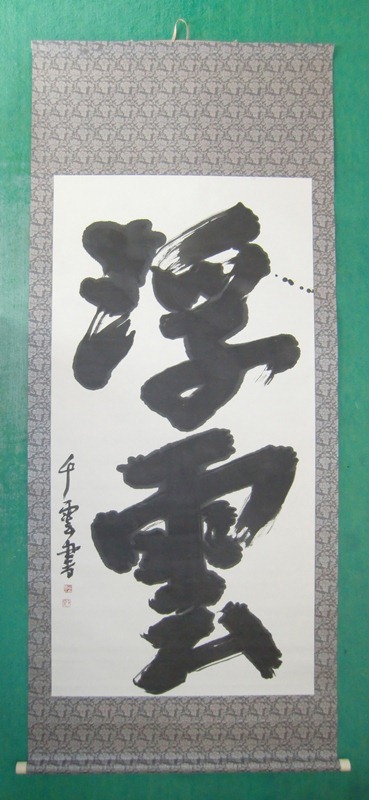 浮雲
千雲書